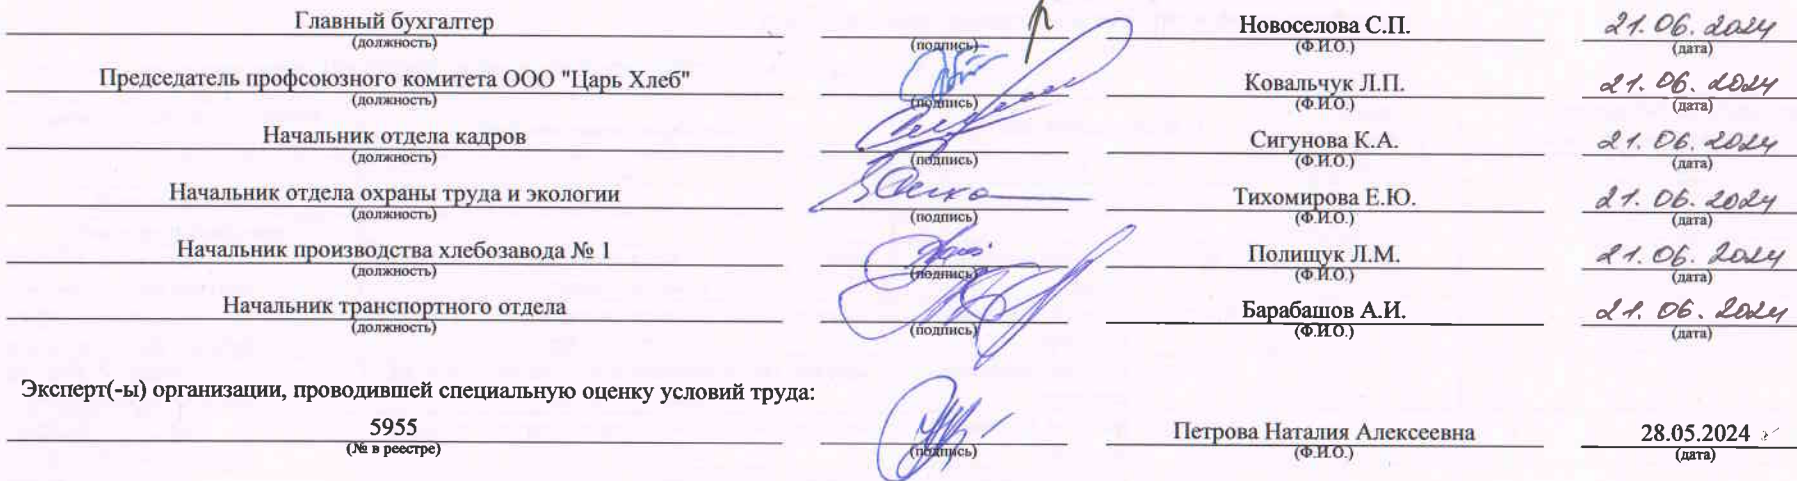 Главный бухгалтер Новоселова С.П. 21.06.2024
(должность) (подпись) (Ф.И.О.) (дата)
Председатель профсоюзного комитета ООО "Царь Хлеб" Ковальчук Л.П. 21.06.2024
(должность) (подпись) (Ф.И.О.) (дата)
Начальник отдела кадров Сигунова К.А. 21.06.2024
(должность) (подпись) (Ф.И.О.) (дата)
Начальник отдела охраны труда и экологии Тихомирова Е.Ю. 21.06.2024
(должность) (подпись) (Ф.И.О.) (дата)
Начальник производства хлебозавода № 1 Полищук Л.М. 21.06.2024
(должность) (подпись) (Ф.И.О.) (дата)
Начальник транспортного отдела Барабашов А.И. 21.06.2024
(должность) (подпись) (Ф.И.О.) (дата)
Эксперт(-ы) организации, проводившей специальную оценку условий труда:
5955 Петрова Наталия Алексеевна 28.05.2024
(№ в реестре) (подпись) (Ф.И.О.) (дата)